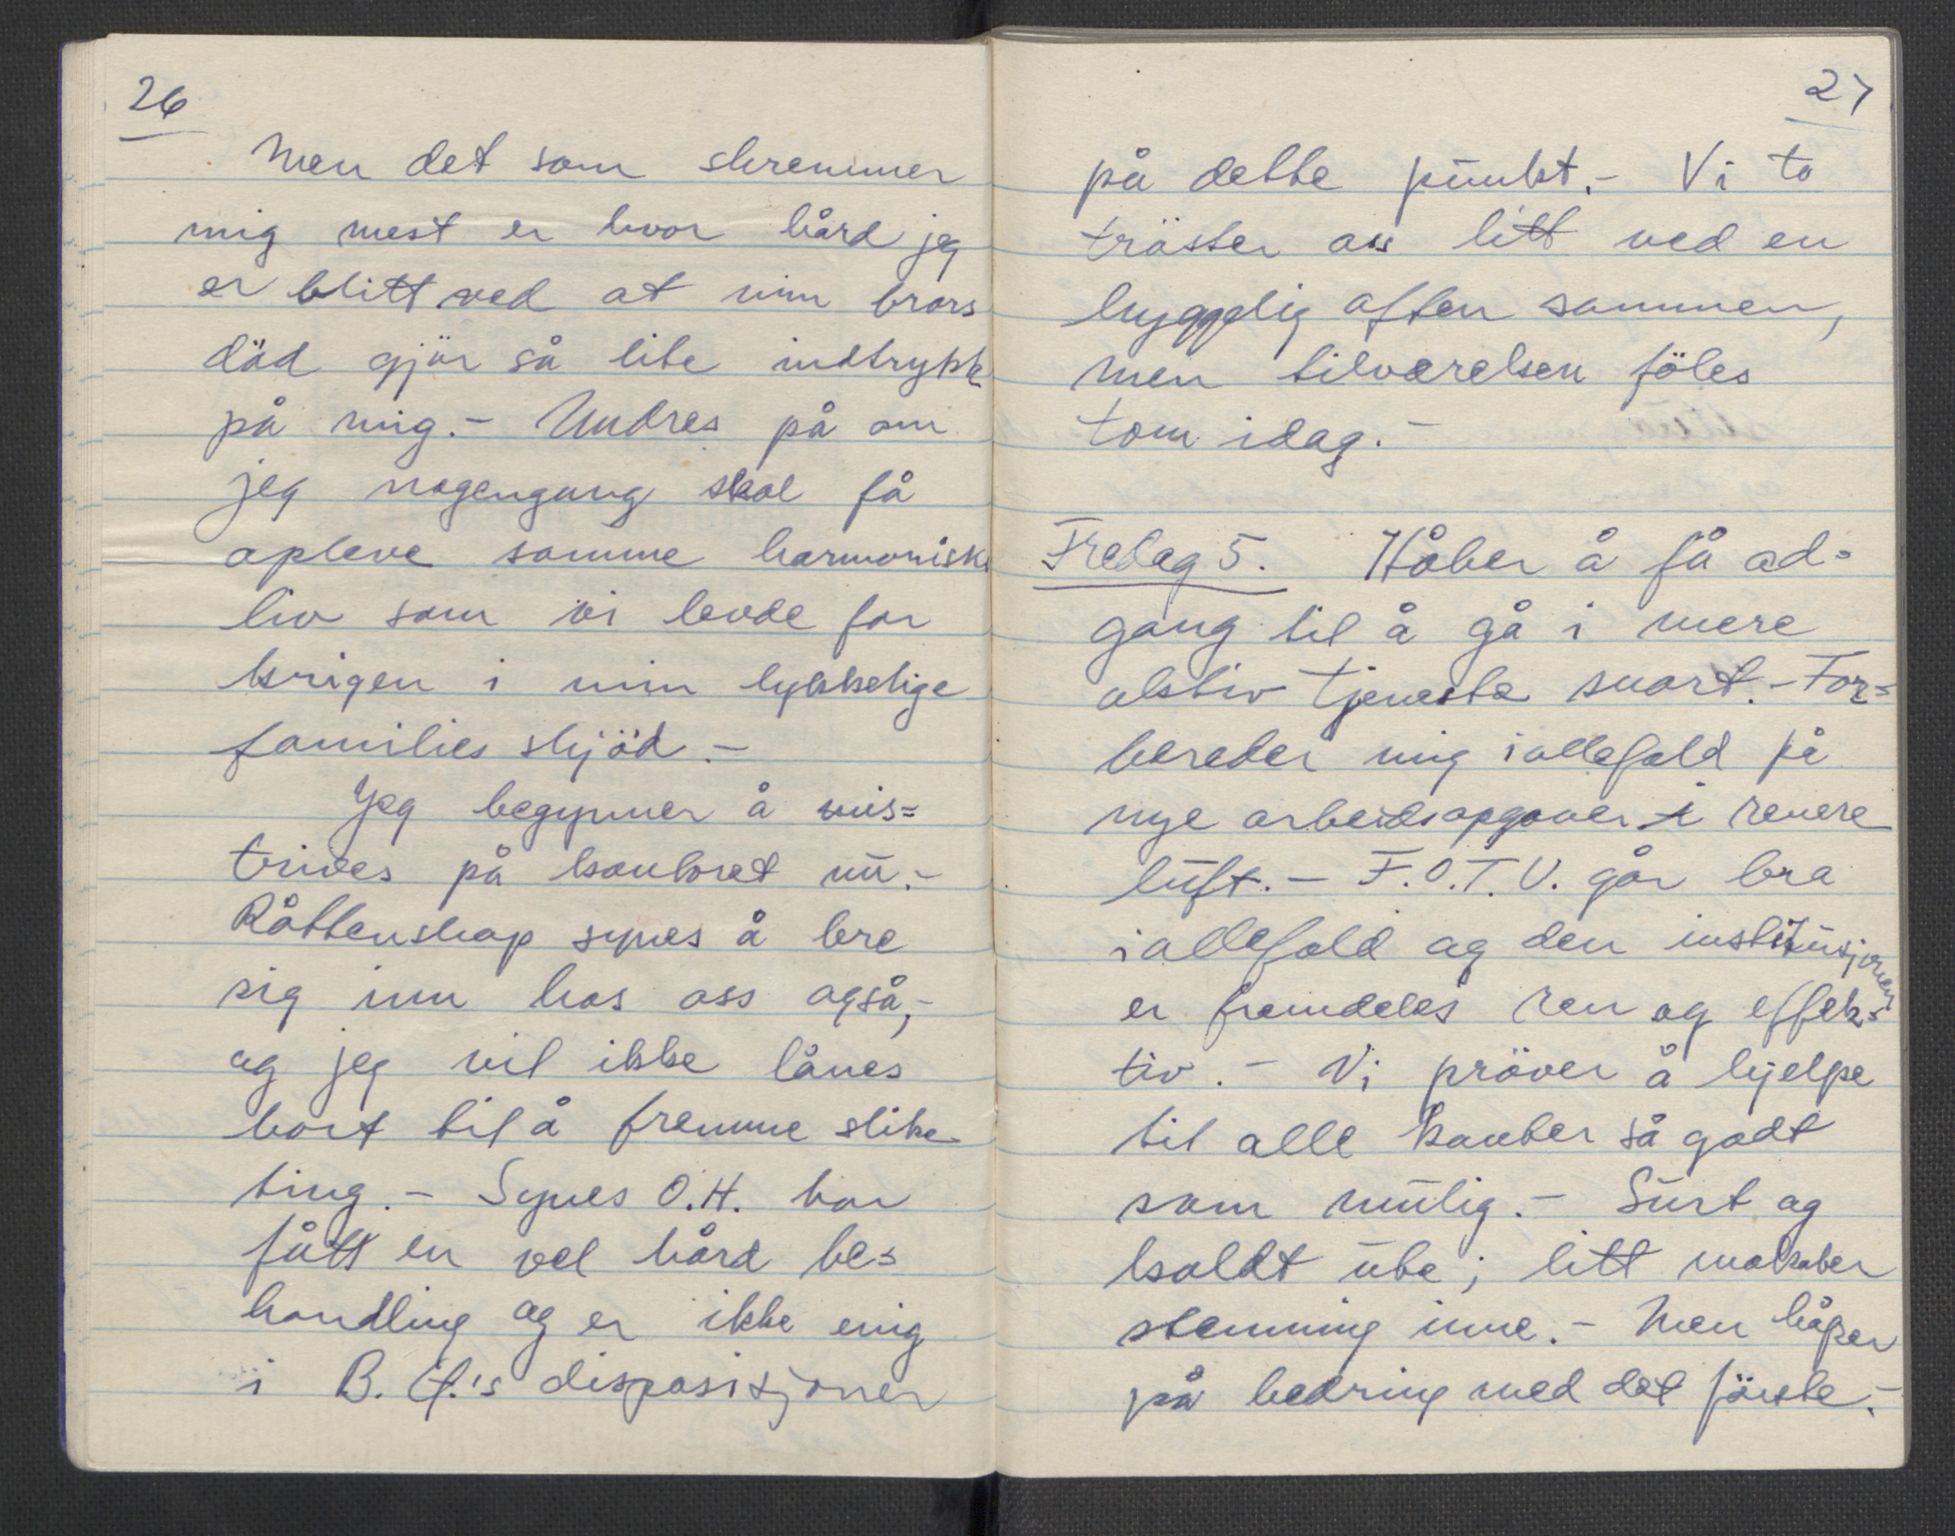 26
Men det som skremmer
mig mest er hvor hård jeg
er blitt ved at min brors
död gjör så lite indtrykk
på mig.- Undres på om
jeg nogengang skal få
opleve samme harmoniske
liv som vi levde før
krigen i min lykkelige
families skjöd.-
Jeg begynner å mis=
trives på kontoret nu.-
Råttenskap synes å bre
sig inn hos oss også,-
og jeg vil ikke lånes
bort til å fremme slike
ting.- Synes O.H. har
fått en vel hård be=
handling og er ikke enig
i B. 's disposisjoner
27
på dette punkt.- Vi to
tröster oss litt ved en
hyggelig aften sammen,
men tilværelsen föles
tom idag.-
Fredag 5. Håber å få ad=
gang til å gå i mere
aktiv tjeneste snart.- For=
bereder mig iallefald på
nye arbeidsopgaver i renere
luft.- F.O.T.U. går bra
iallefald og den institusjonen
er fremdeles ren og effek=
tiv.- Vi pröver å hjelpe
til alle kanter så godt
som mulig.- Surt og
koldt ute; litt makaber
stemning inne.- Men håper
på bedring med det förste.-